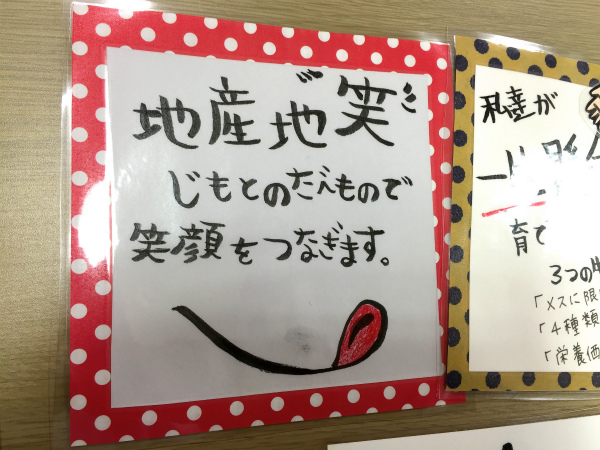 地産地笑
じもとのたべもので
笑顔をつなぎます。
私達が
育て
3つの
「メスに限
「4種類
「栄養価